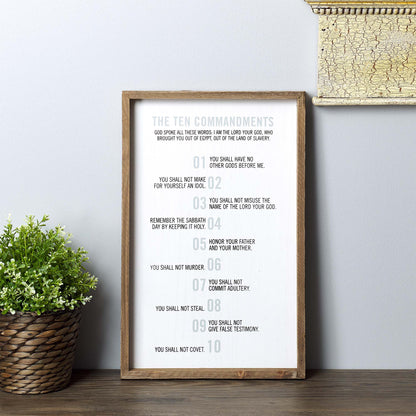 THE TEN COMMANDMENTS
GOD SPOKE ALL THESE WORDS: I AM THE LORD YOUR GOD, WHO
BROUGHT YOU OUT OF EGYPT, OUT OF THE LAND OF SLAVERY.
01 YOU SHALL HAVE NO
OTHER GODS BEFORE ME.
YOU SHALL NOT MAKE 02
FOR YOURSELF AN IDOL.
03 YOU SHALL NOT MISUSE THE
NAME OF THE LORD YOUR GOD.
REMEMBER THE SABBATH 04
DAY BY KEEPING IT HOLY.
05 HONOR YOUR FATHER
AND YOUR MOTHER.
YOU SHALL NOT MURDER. 06
07 YOU SHALL NOT
COMMIT ADULTERY.
YOU SHALL NOT STEAL. 08
09 YOU SHALL NOT
GIVE FALSE TESTIMONY.
YOU SHALL NOT COVET. 10